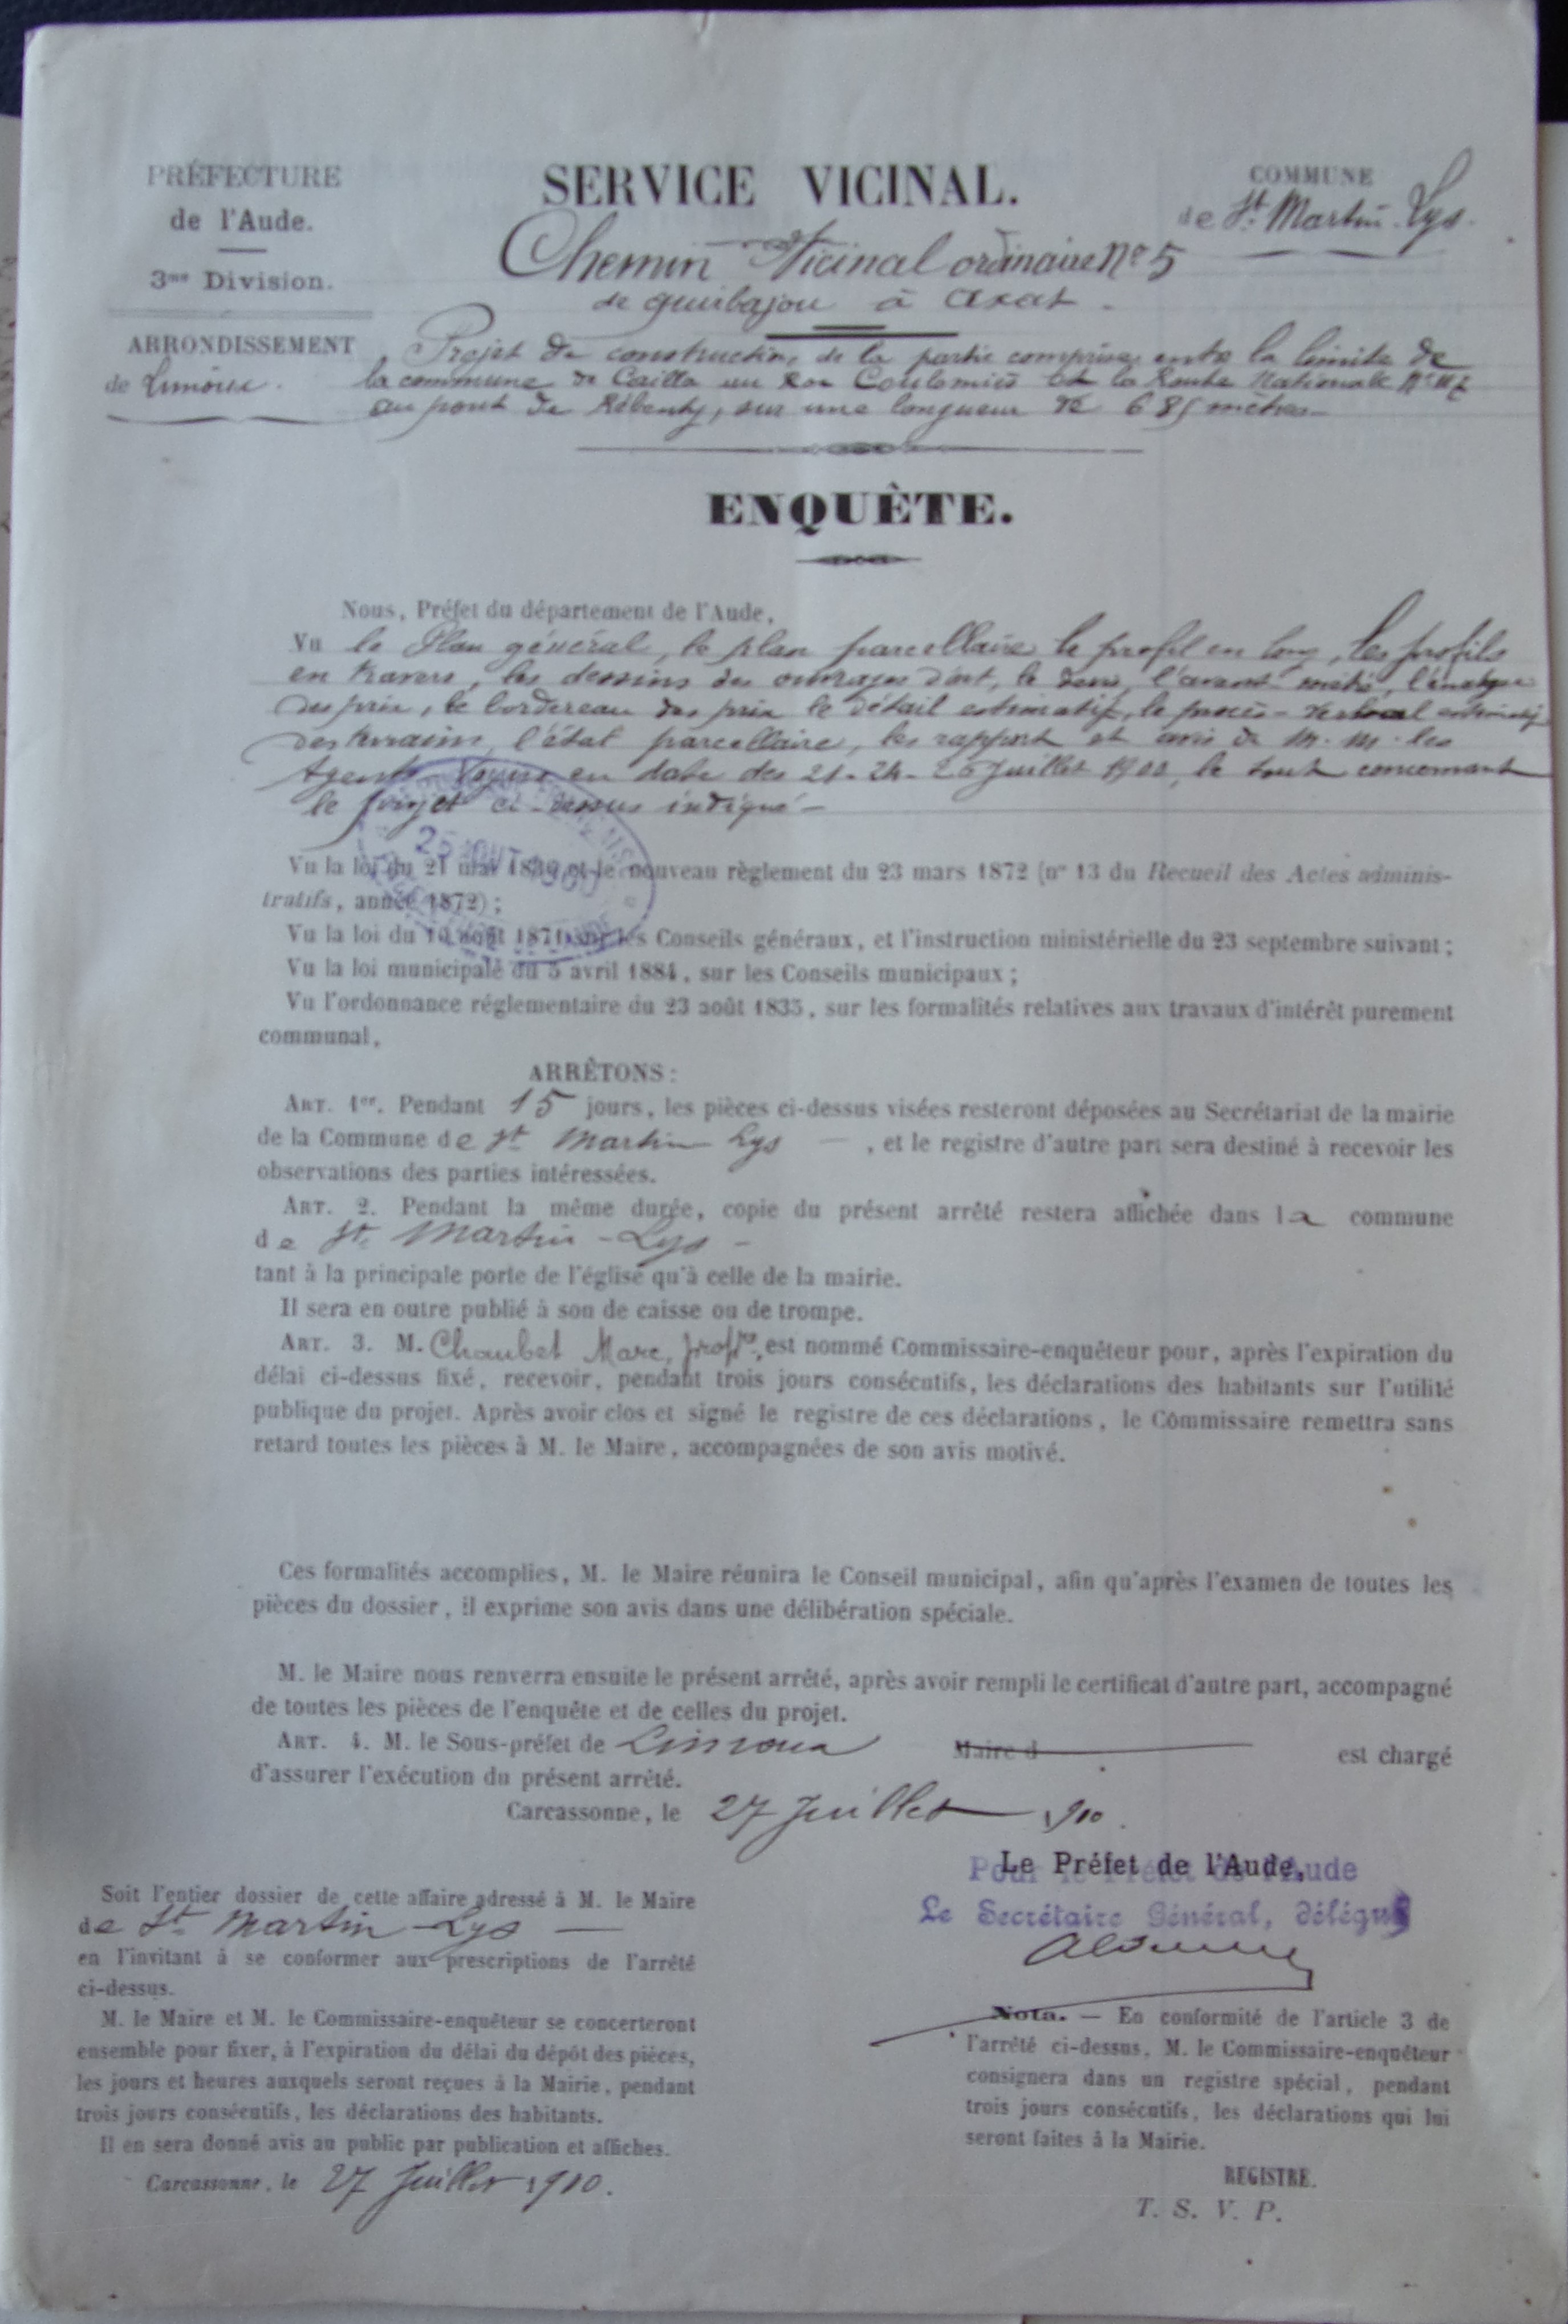 PRÉFECTURE
de l'Aude.
3me Division.
ARRONDISSEMENT
de Limoux.
SERVICE VICINAL.
Chemin Vicinal ordinaire No 5
de quirbajou à Axat.
COMMUNE
de St Martin-Lys.
Projet de construction de la partie comprise entre la limite de
la commune de Cailla au Coulomiés et la Route Nationale No 117
au pont de Rébenty, sur une longueur de 685 mètres
ENQUÈTE.
Nous, Préfet du département de l'Aude,
Vu le Plan général, le plan parcellaire le profil en long, les profils
en travers, les dessins des ouvrages d'art, le devis, l'avant-métré, l'analyse
des prix, le bordereau des prix le détail estimatif, le procès-verbal estimatif
des terrains, l'état parcellaire, les rapport et avis de M.M. les
Agents Voyers en date des 21-24-26 Juillet, le tout concernant
le projet ci-dessus indiqué -
Vu la loi du 21 mai et le nouveau règlement du 23 mars 1872 (no 13 du Recueil des Actes adminis-
tratifs, année 1872);
Vu la loi du 10 août 1871 sur les Conseils généraux, et l'instruction ministérielle du 23 septembre suivant;
Vu la loi municipale du 5 avril 1884, sur les Conseils municipaux;
Vu l'ordonnance réglementaire du 23 août 1835, sur les formalités relatives aux travaux d'intérêt purement
communal,
ARRÊTONS:
ART. 1er. Pendant 15 jours, les pièces ci-dessus visées resteront déposées au Secrétariat de la mairie
de la Commune de St Martin Lys —, et le registre d'autre part sera destiné à recevoir les
observations des parties intéressées.
ART. 2. Pendant la même durée, copie du présent arrêté restera affichée dans la commune
de St Martin-Lys -
tant à la principale porte de l'église qu'à celle de la mairie.
Il sera en outre publié à son de caisse ou de trompe.
ART. 3. M. Chaubet Marc, proPre, est nommé Commissaire-enquêteur pour, après l'expiration du
délai ci-dessus fixé, recevoir, pendant trois jours consécutifs, les déclarations des habitants sur l'utilité
publique du projet. Après avoir clos et signé le registre de ces déclarations, le Commissaire remettra sans
retard toutes les pièces à M. le Maire, accompagnées de son avis motivé.
Ces formalités accomplies, M. le Maire réunira le Conseil municipal, afin qu'après l'examen de toutes les
pièces du dossier, il exprime son avis dans une délibération spéciale.
M. le Maire nous renverra ensuite le présent arrêté, après avoir rempli le certificat d'autre part, accompagné
de toutes les pièces de l'enquête et de celles du projet.
ART. 4. M. le Sous-préfet de Limoux Maire d est chargé
d'assurer l'exécution du présent arrêté.
Carcassonne, le 27 Juillet 1910.
Le Préfet de l'Aude,
Pour le Préfet de l'Aude
Le Secrétaire Général, délégué
Soit l'entier dossier de cette affaire adressé à M. le Maire
de St Martin-Lys —
en l'invitant à se conformer aux prescriptions de l'arrêté
ci-dessus.
M. le Maire et M. le Commissaire-enquêteur se concerteront
ensemble pour fixer, à l'expiration du délai du dépôt des pièces,
les jours et heures auxquels seront reçues à la Mairie, pendant
trois jours consécutifs, les déclarations des habitants.
Il en sera donné avis au public par publication et affiches.
Carcassonne, le 27 Juillet 1910.
Nota. — En conformité de l'article 3 de
l'arrêté ci-dessus, M. le Commissaire-enquêteur
consignera dans un registre spécial, pendant
trois jours consécutifs, les déclarations qui lui
seront faites à la Mairie.
REGISTRE.
T. S. V. P.